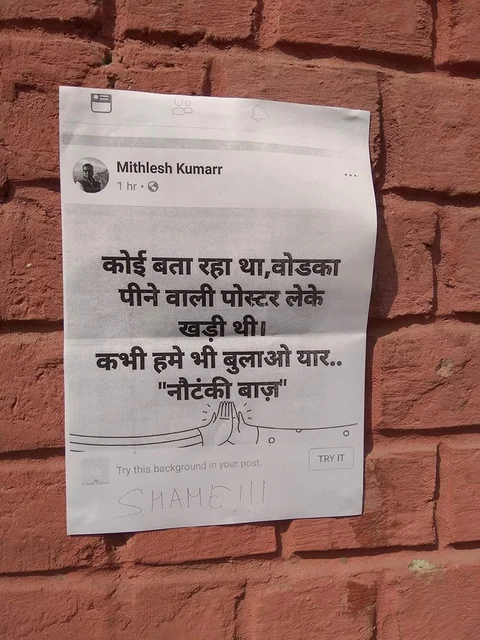 Mithlesh Kumarr
1 hr •
कोई बता रहा था,वोडका
पीने वाली पोस्टर लेके
खड़ी थी।
कभी हमे भी बुलाओ यार..
"नौटंकी बाज़"
Try this background in your post.
TRY IT
SHAME!!!